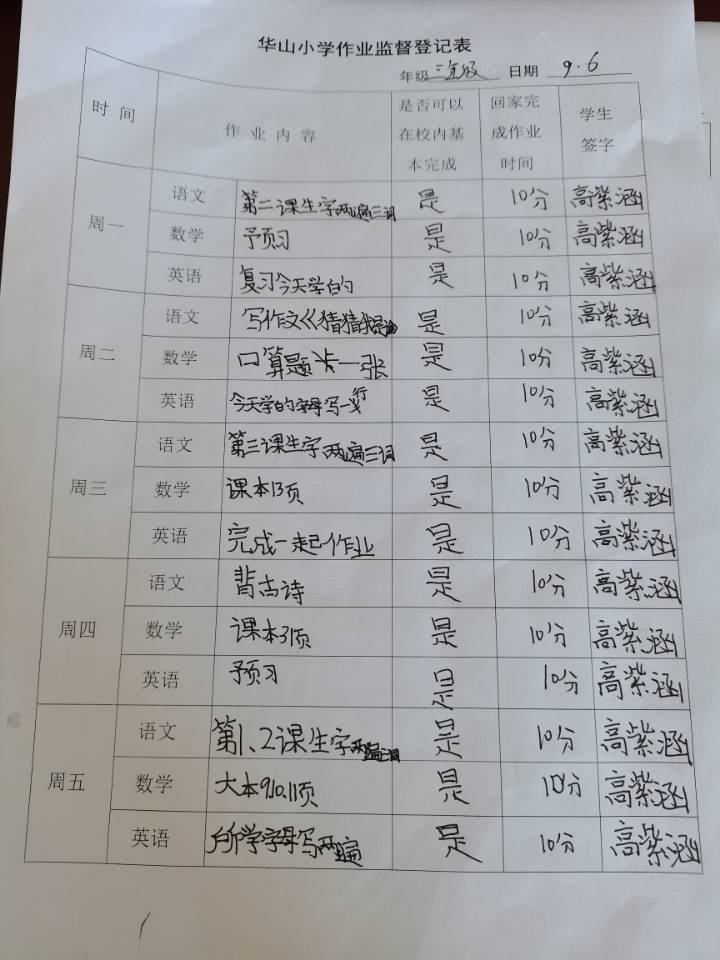 华山小学作业监督登记表
年级 三年级 日期 9.6
时间 作业内容 是否可以在校内基本完成 回家完成作业时间 学生签字
周一 语文 第二课生字两遍三词 是 10分 高紫涵
数学 予预习 是 10分 高紫涵
英语 复习今天学的 是 10分 高紫涵
周二 语文 写作文《猜猜我是谁 是 10分 高紫涵
数学 口算题卡一张 是 10分 高紫涵
英语 今天学的字母写一行 是 10分 高紫涵
周三 语文 第三课生字两遍三词 是 10分 高紫涵
数学 课本13页 是 10分 高紫涵
英语 完成一起作业 是 10分 高紫涵
周四 语文 背古诗 是 10分 高紫涵
数学 课本31页 是 10分 高紫涵
英语 予习 是 10分 高紫涵
周五 语文 第1、2课生字两遍三词 是 10分 高紫涵
数学 大本9.10.11页 是 10分 高紫涵
英语 所学字母写两遍 是 10分 高紫涵